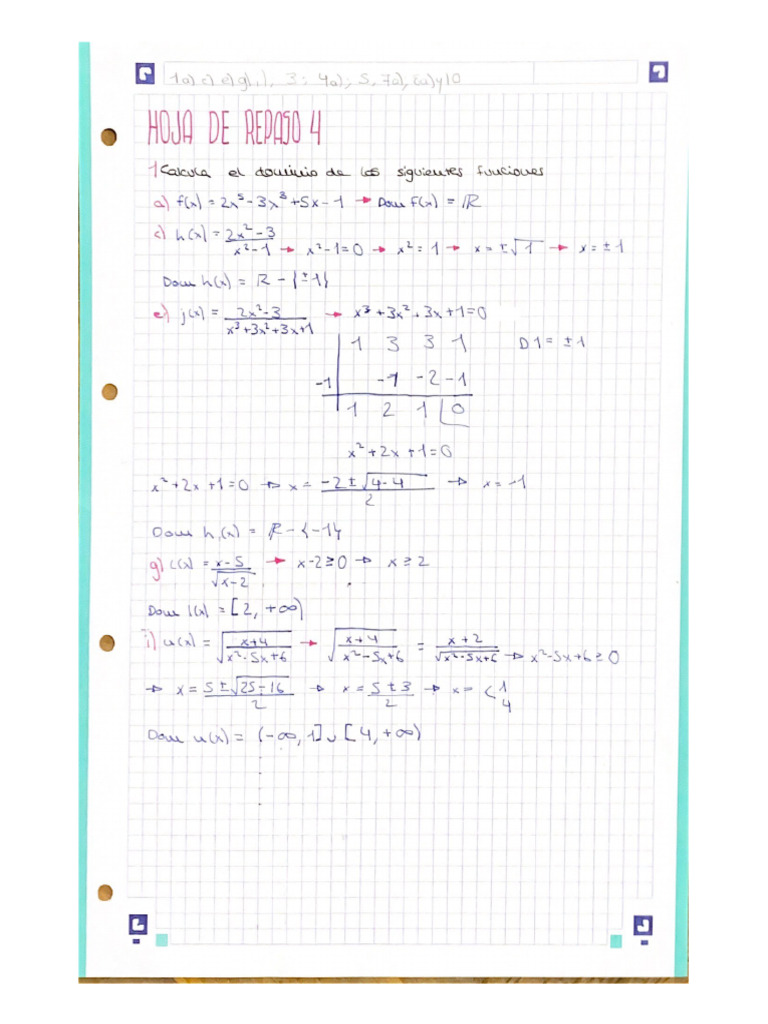 1a) c) e) g), i), 3; 4a); 5, 7a), 8a) y 10
HOJA DE REPASO 4
1 Calcula el dominio de las siguientes funciones
a) f(x) = 2x⁵ - 3x³ + 5x - 1 → Dom f(x) = ℝ
c) h(x) = (2x² - 3)/(x² - 1) → x² - 1 = 0 → x² = 1 → x = ±√1 → x = ±1
Dom h(x) = ℝ - {±1}
e) j(x) = (2x² - 3)/(x³ + 3x² + 3x + 1) → x³ + 3x² + 3x + 1 = 0
1 3 3 1 D1 = ±1
-1 -1 -2 -1
1 2 1 0
x² + 2x + 1 = 0
x² + 2x + 1 = 0 → x = (-2 ± √(4 - 4))/2 → x = -1
Dom h(x) = ℝ - {-1}
g) l(x) = (x - 5)/√(x - 2) → x - 2 ≥ 0 → x ≥ 2
Dom l(x) = [2, +∞)
i) u(x) = √((x + 4)/(x² - 5x + 6)) → √((x + 4)/(x² - 5x + 6)) = (x + 2)/√(x² - 5x + 6) → x² - 5x + 6 ≥ 0
→ x = (5 ± √(25 - 16))/2 → x = (5 ± 3)/2 → x = < 1
4
Dom u(x) = (-∞, 1] ∪ [4, +∞)